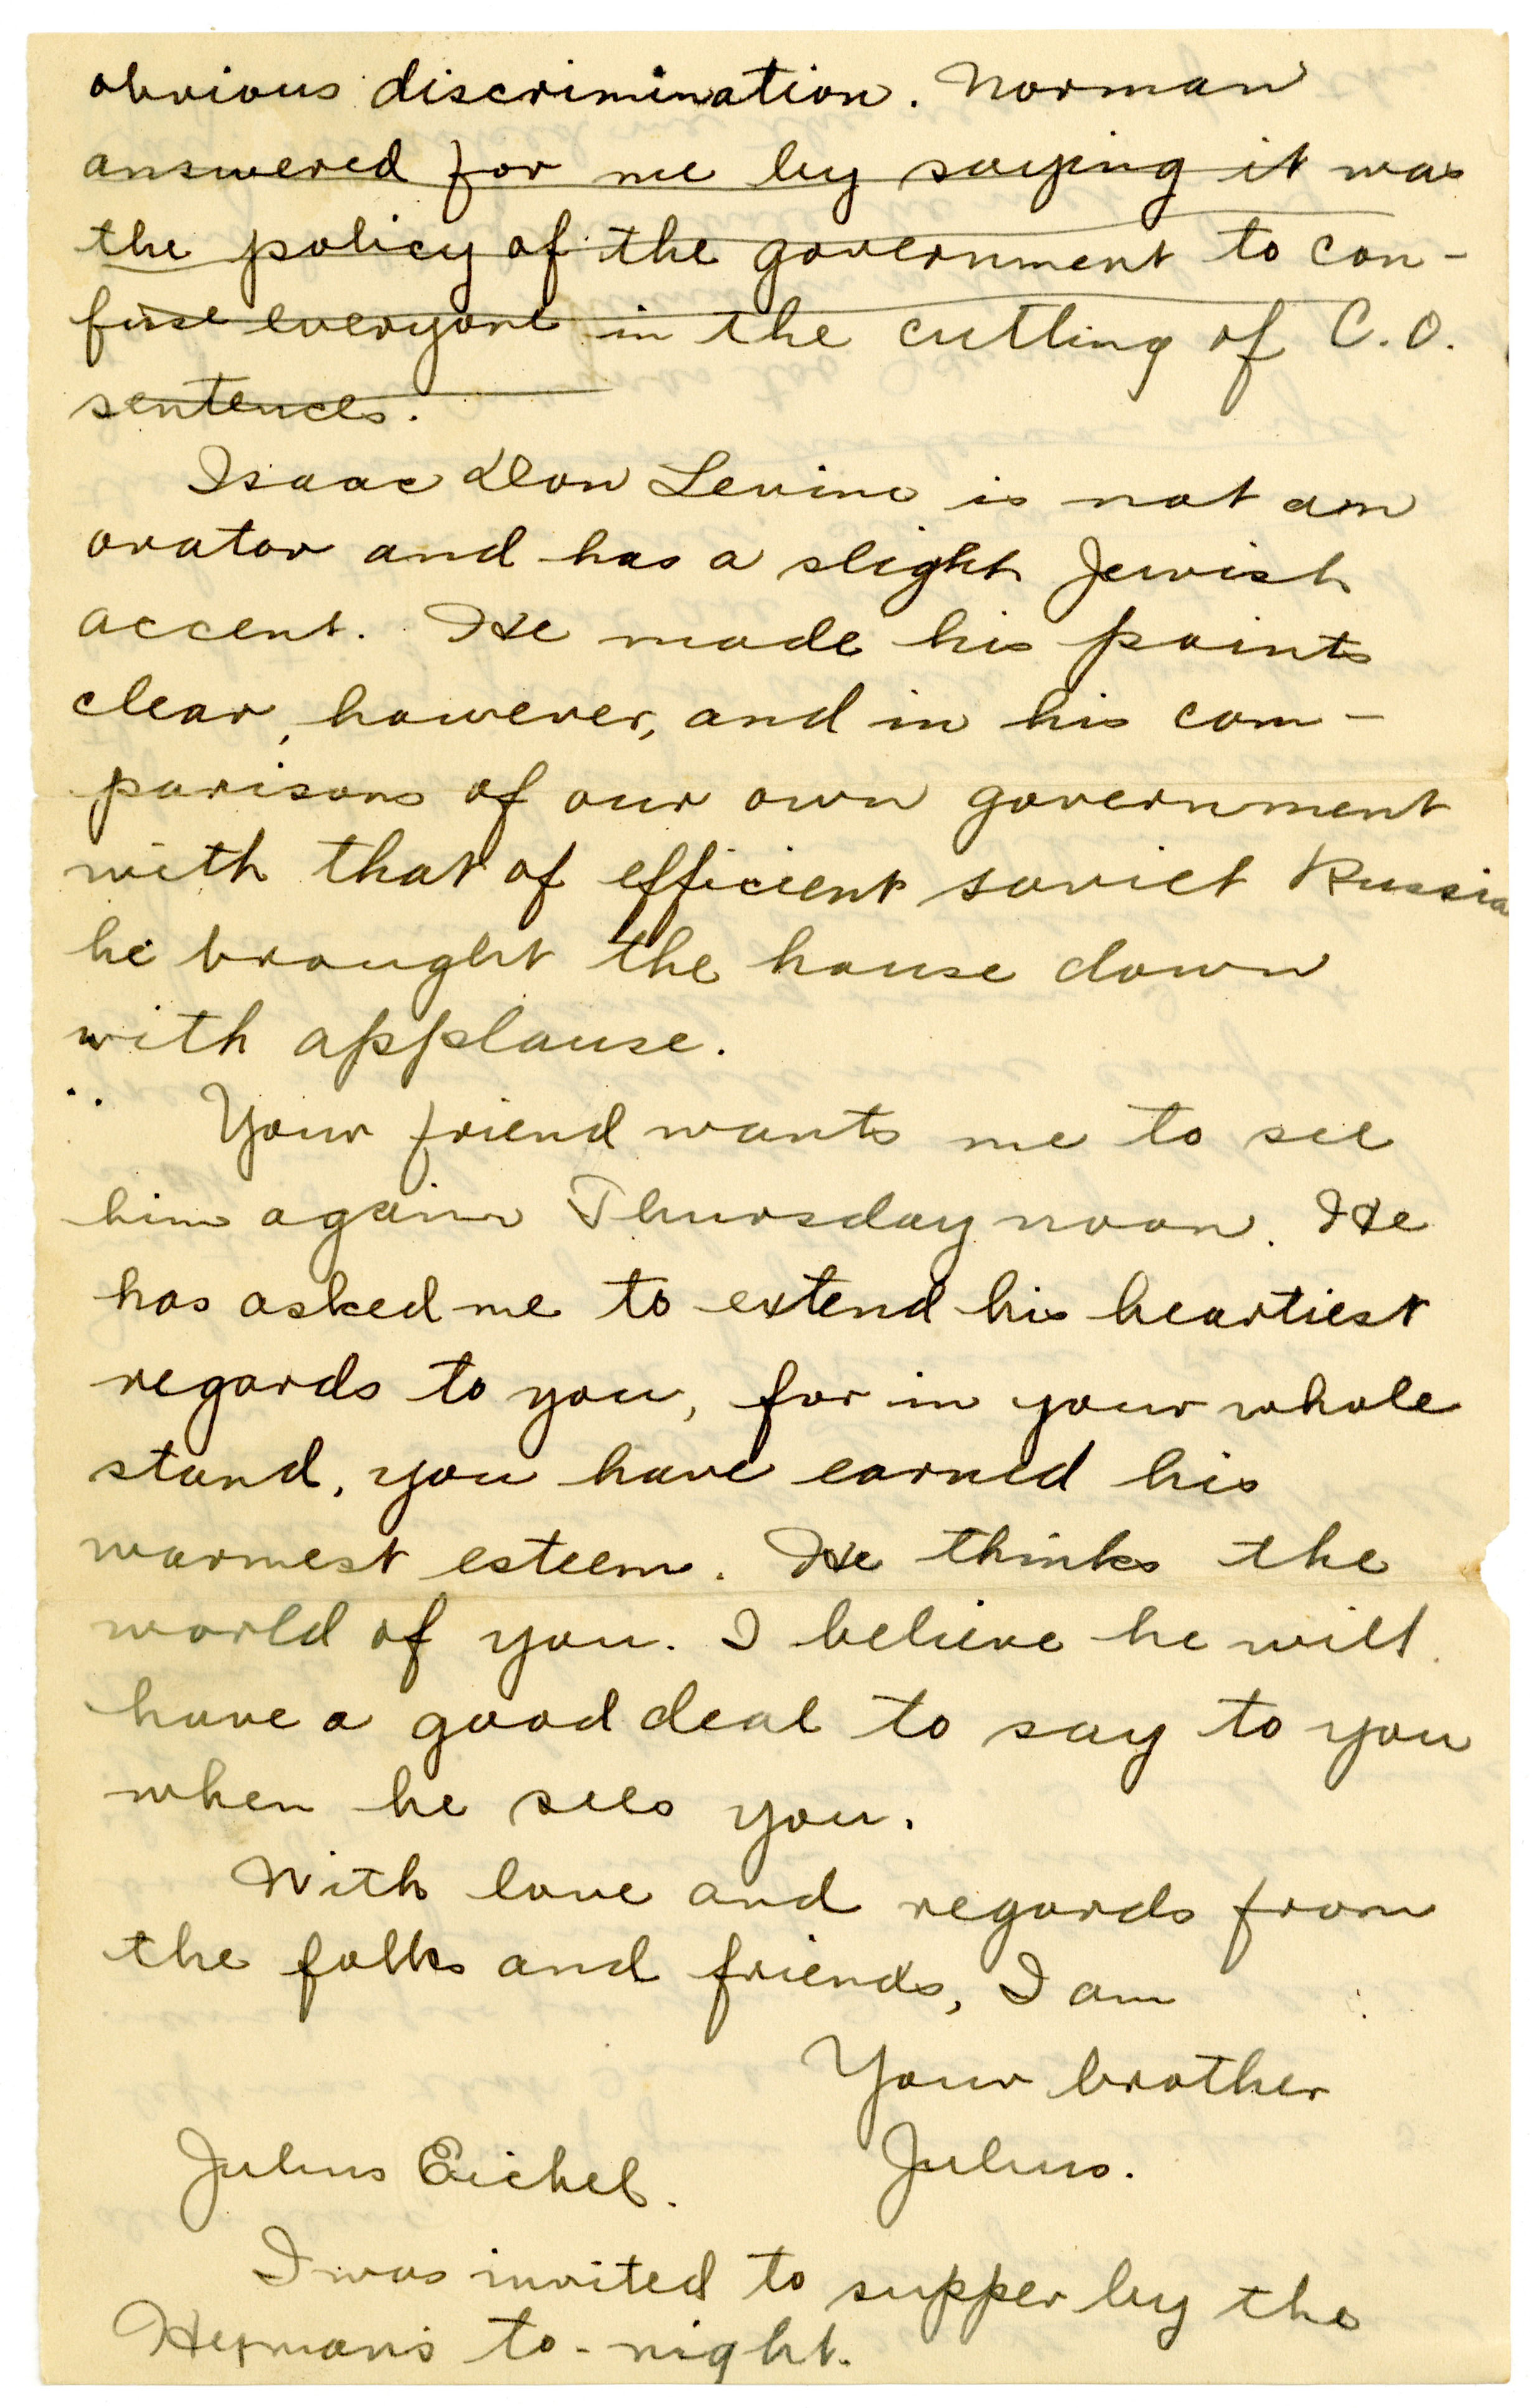 obvious discrimination. Norman
answered for me by saying it was
the policy of the government to con-
fuse everyone in the cutting of C.O.
sentences.
Isaac Don Levine is not an
orator and has a slight Jewish
accent. He made his points
clear, however, and in his com-
parisons of our own government
with that of efficient soviet Russia
he brought the house down
with applause.
Your friend wants me to see
him again Thursday noon. He
has asked me to extend his heartiest
regards to you, for in your whole
stand, you have earned his
warmest esteem. He thinks the
world of you. I believe he will
have a good deal to say to you
when he sees you.
With love and regards from
the folks and friends, I am
Your brother
Julius Eichel. Julius.
I was invited to supper by the
Heyman's to-night.